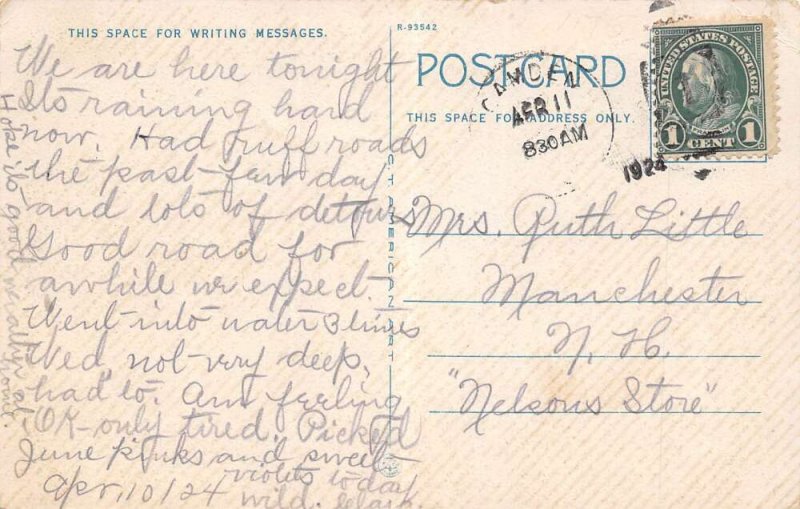 THIS SPACE FOR WRITING MESSAGES.
R-93542
POSTCARD
THIS SPACE FOR ADDRESS ONLY.
CAMDEN
APR 11
830AM
1924
UNITED STATES POSTAGE
1 CENT 1
We are here tonight
Its raining hard
now. Had ruff roads
the past few day
and lots of detours
Good road for
awhile we expect.
Went into water 3 times
Wed, not very deep,
had to. Am feeling
OK-only tired. Picked
June pinks and sweet
violets to day
Apr, 10/24 wild.
Hope its good weather at
home.
ST AMERICAN ART
Mrs. Ruth Little
Manchester
N. H.
"Nelsons Store"